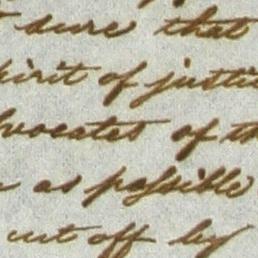 sure that
spirit of justi
dvocates of th
as possible
cut off by